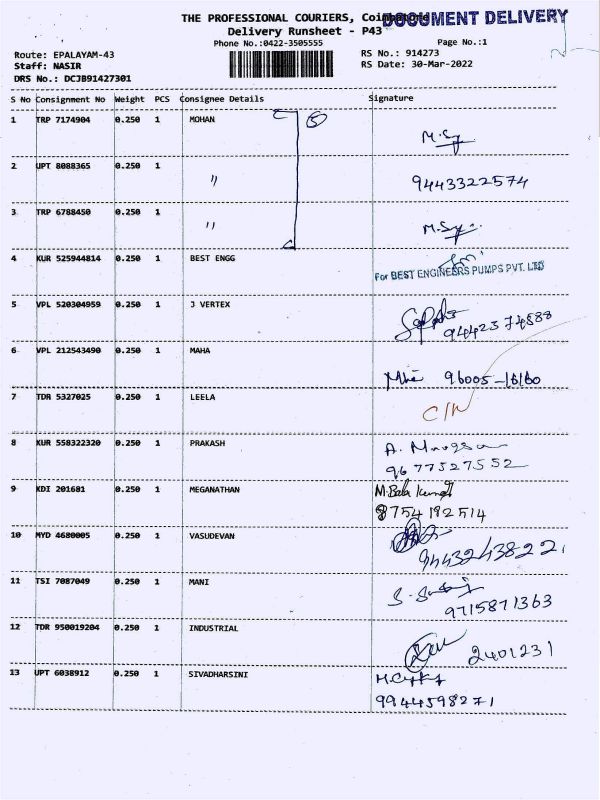 THE PROFESSIONAL COURIERS, Coimbatore
DOCUMENT DELIVERY
Delivery Runsheet - P43
Phone No.:0422-3505555
Page No.:1
Route: EPALAYAM-43
RS No.: 914273
Staff: NASIR
RS Date: 30-Mar-2022
DRS No.: DCJB91427301
S No Consignment No Weight PCS Consignee Details Signature
1 TRP 7174904 0.250 1 MOHAN 5
2 UPT 8088365 0.250 1 〃 9443322574
3 TRP 6788450 0.250 1 〃
4 KUR 525944814 0.250 1 BEST ENGG
For BEST ENGINEERS PUMPS PVT. LTD
5 VPL 520304959 0.250 1 J VERTEX
9442374888
6 VPL 212543490 0.250 1 MAHA
96005-16160
7 TDR 5327025 0.250 1 LEELA
8 KUR 558322320 0.250 1 PRAKASH
9677527552
9 KDI 201681 0.250 1 MEGANATHAN M.Bala
8754192514
10 MYD 4680005 0.250 1 VASUDEVAN
9443243822
11 TSI 7087049 0.250 1 MANI
9715871363
12 TDR 950019204 0.250 1 INDUSTRIAL
2401231
13 UPT 6038912 0.250 1 SIVADHARSINI
9944598271